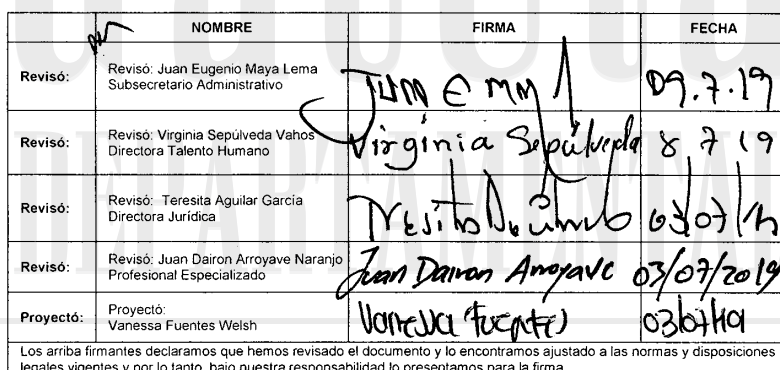 NOMBRE FIRMA FECHA
Revisó: Revisó: Juan Eugenio Maya Lema
Subsecretario Administrativo 09.7.19
Revisó: Revisó: Virginia Sepúlveda Vahos
Directora Talento Humano Virginia Sepúlveda 8 7 19
Revisó: Revisó: Teresita Aguilar García
Directora Jurídica
Revisó: Revisó: Juan Dairon Arroyave Naranjo
Profesional Especializado Juan Dairon Arroyave 03/07/2019
Proyectó: Proyectó:
Vanessa Fuentes Welsh Vanessa Fuentes 03/07/19
Los arriba firmantes declaramos que hemos revisado el documento y lo encontramos ajustado a las normas y disposiciones
legales vigentes y por lo tanto, bajo nuestra responsabilidad lo presentamos para la firma.